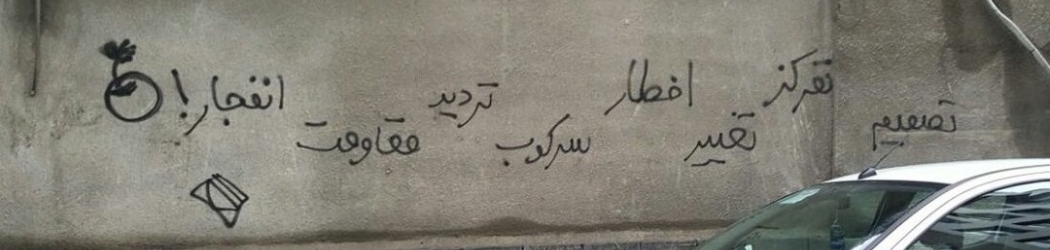 تمرکز اخطار تردید انفجار!
تصمیم تغییر سرکوب مقاومت